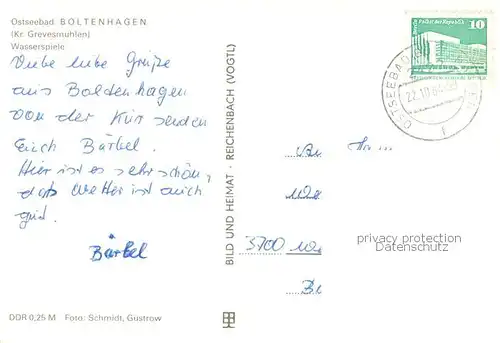 Ostseebad BOLTENHAGEN
(Kr. Grevesmühlen)
Wasserspiele
Viele liebe Grüße
aus Boldenhagen
von der Kur senden
Euch Bärbel.
Hier ist es sehr schön,
das Wetter ist auch
gut.
Bärbel
DDR 0,25 M Foto: Schmidt, Gustrow
BILD UND HEIMAT · REICHENBACH (VOGTL)
Palast der Republik 10
OSTSEEBAD
22.10
An
3700
privacy protection
Datenschutz